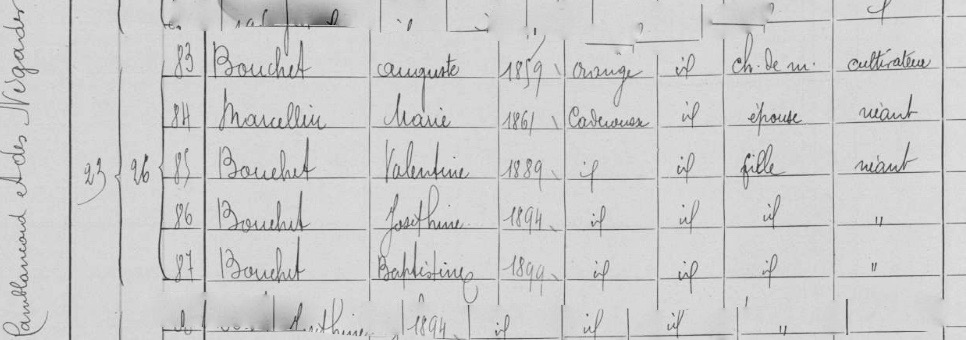 83 Bouchet Auguste 1859 Orange id ch. de m. cultivateur
84 Marcellin Marie 1861 Caderousse id épouse néant
23 26 85 Bouchet Valentine 1889 id id fille néant
86 Bouchet Joséphine 1894 id id id "
87 Bouchet Baptistine 1899 id id id "
1894 id id id "
et des Négades